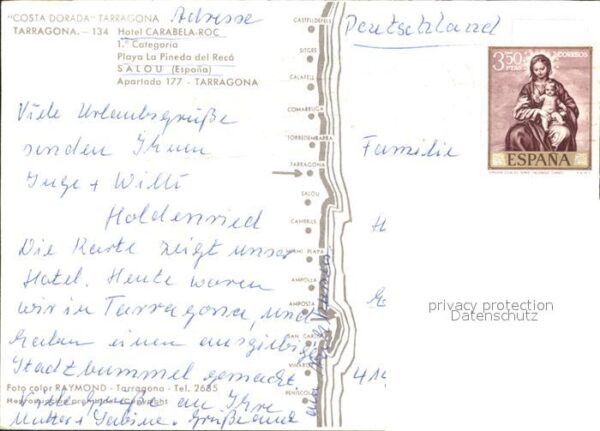 "COSTA DORADA" TARRAGONA Adresse
TARRAGONA. — 134 Hotel CARABELA-ROC
1.ª Categoría
Playa La Pineda del Recó
SALOU (España)
Apartado 177 - TARRAGONA
Viele Urlaubsgrüße
senden Ihnen
Inge + Willi
Holdenried
Die Karte zeigt unser
Hotel. Heute waren
wir in Tarragona, und
haben einen ausgiebigen
Stadtbummel gemacht.
Viele Grüße an Ihre
Mutter + Sabine. Grüße auch
Foto color RAYMOND - Tarragona - Tel. 2685
CASTELLDEFELS
SITGES
CALAFELL
COMARRUGA
TORREDEMBARRA
TARRAGONA
SALOU
CAMBRILS
MIAMI PLAYA
AMPOLLA
AMPOSTA
SAN CARLOS
VINAROZ
PEÑISCOLA
Deutschland
3,50
PTAS
CORREOS
ESPAÑA
Familie
privacy protection
Datenschutz